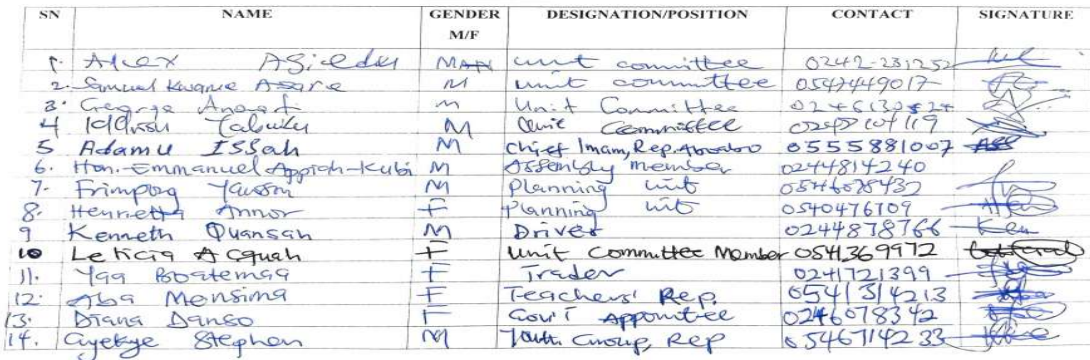 SN NAME GENDER M/F DESIGNATION/POSITION CONTACT SIGNATURE
1. Alex Agiedu MAN unit committee 0242-231252
2. Samuel Kwame Asare M unit committee 0547449017
3. George M Unit Committee
4 Iddrisu M Unit Committee
5 Adamu ISSah M Chief Imam, Rep. 0555881007
6. Hon. Emmanuel Appiah-Kubi M Assembly member 0244814240
7. Frimpong Yawson M Planning unit 0546078432
8. Henrietta Annor F Planning unit 0540476709
9 Kenneth Quansah M Driver 0244878766 Ken
10 Leticia Acquah F Unit Committee Member 0541369972
11. Yaa Boatemaa F Trader 0241721399
12. Aba Mensima F Teachers' Rep. 0541314213
13. Diana Danso F Gov't Appointee 0246078342
14. Gyekye Stephen M Youth Group, Rep 0546714233